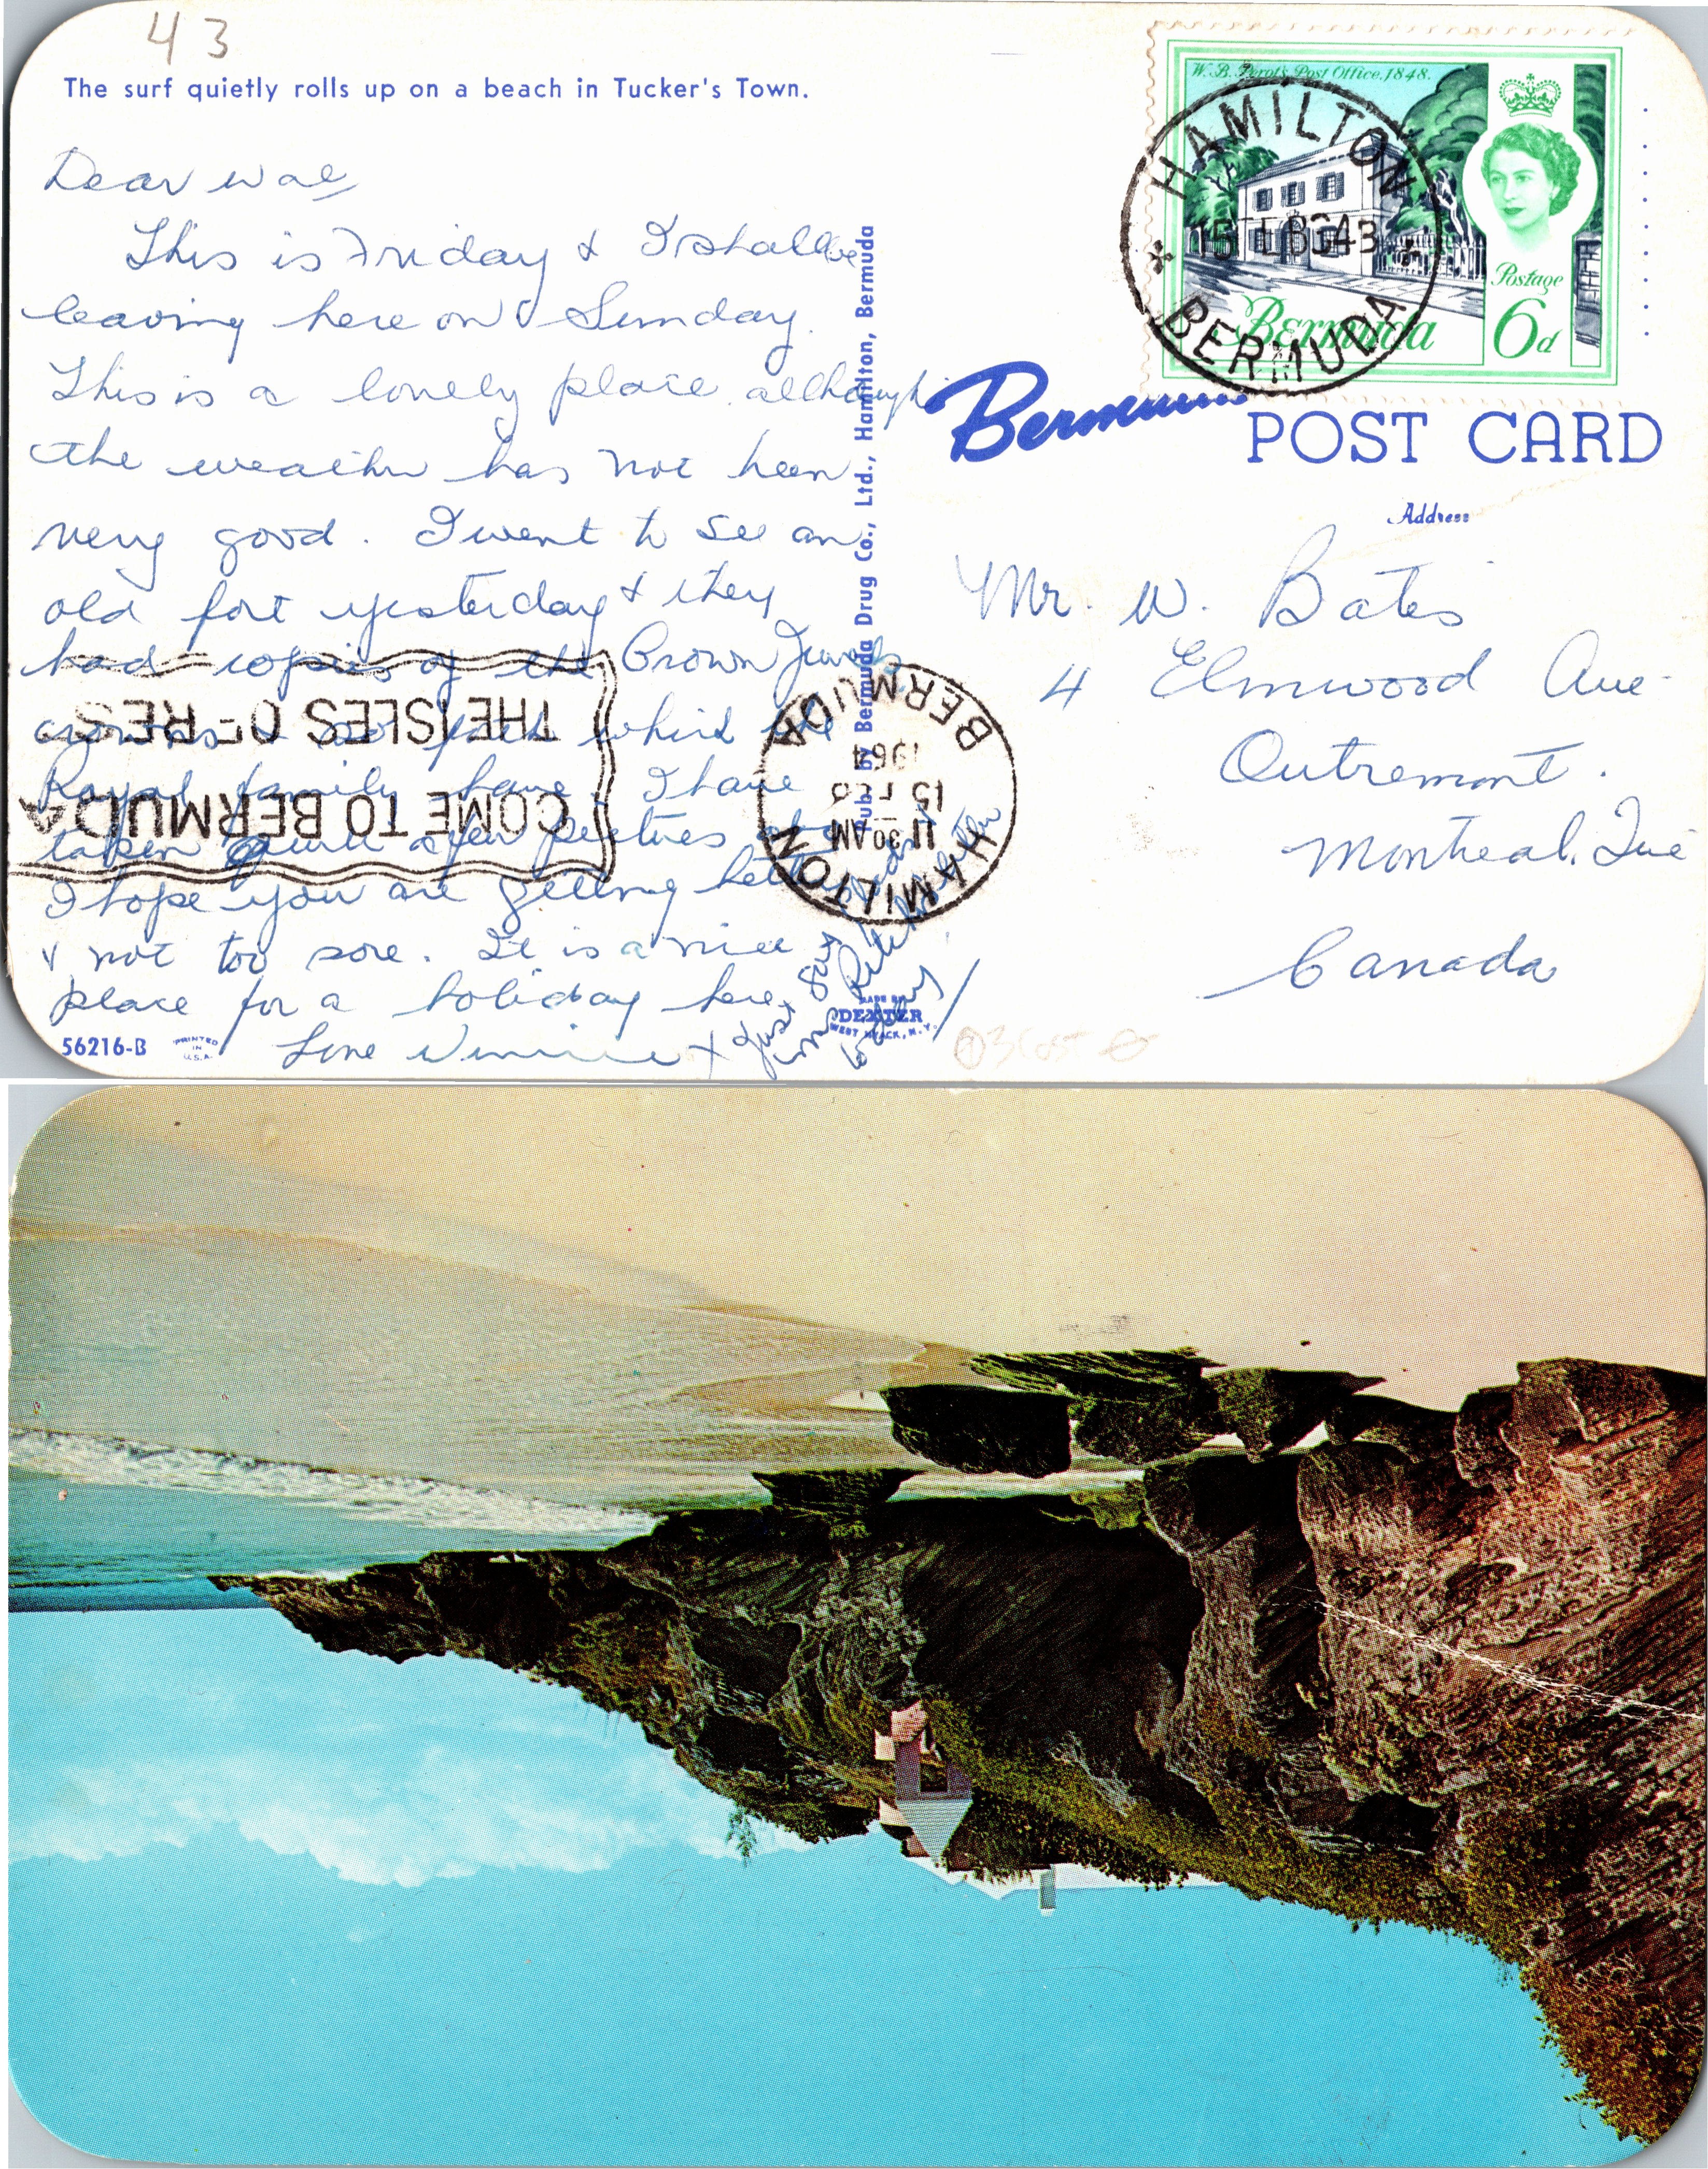 43
The surf quietly rolls up on a beach in Tucker's Town.
Dear Wal
This is Friday & I shall be
leaving here on Sunday.
This is a lonely place although
the weather has not been
very good. I went to see an
old fort yesterday & they
had copies of the Crown Jewels
crowns & so forth which the
Royal family have. I have
taken quite a few pictures
I hope you are getting better
& not too sore. It is a nice
place for a holiday here,
Love Winnie X
Just Say
56216-B
PRINTED IN U.S.A.
Pub. by Bermuda Drug Co., Ltd., Hamilton, Bermuda
MADE BY
DEXTER
WEST NYACK, N.Y.
THE ISLES OF RES
COME TO BERMUDA
HAMILTON
11 30 AM
15 FEB
1964
BERMUDA
W.B. Perot's Post Office, 1848.
Postage
6d
Bermuda
HAMILTON
BERMUDA
Bermuda
POST CARD
Address
Mr. W. Bates
4 Elmwood Ave
Outremont.
Montreal. Que
Canada